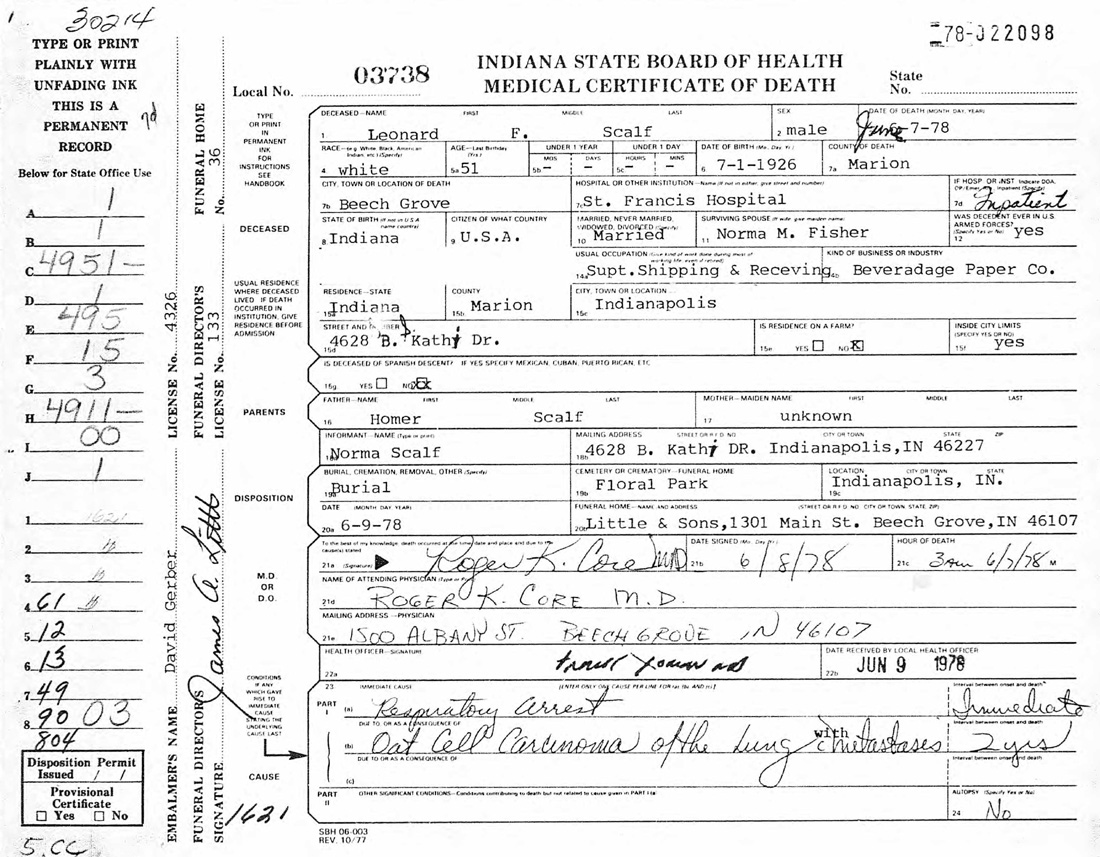 30214
78-022098
TYPE OR PRINT
PLAINLY WITH
UNFADING INK
THIS IS A
PERMANENT
RECORD
Below for State Office Use
A 1
B 1
C 4951-
D 1
E 495
F 15
G 3
H 4911-
I 00
J 1
1 1621
2
3
4 61
5 12
6 13
7 49
8 90 03
804
Disposition Permit
Issued / /
Provisional
Certificate
☐ Yes ☐ No
5. CC
EMBALMER'S NAME David Gerber LICENSE No. 4326
FUNERAL DIRECTOR'S SIGNATURE James A. Little
FUNERAL DIRECTOR'S LICENSE No. 133
FUNERAL HOME No. 36
1621
INDIANA STATE BOARD OF HEALTH
MEDICAL CERTIFICATE OF DEATH
Local No. 03738
State
No.
TYPE
OR PRINT
IN
PERMANENT
INK
FOR
INSTRUCTIONS
SEE
HANDBOOK
DECEASED
USUAL RESIDENCE
WHERE DECEASED
LIVED IF DEATH
OCCURRED IN
INSTITUTION, GIVE
RESIDENCE BEFORE
ADMISSION
PARENTS
DISPOSITION
M.D.
OR
D.O.
CONDITIONS
IF ANY
WHICH GAVE
RISE TO
IMMEDIATE
CAUSE
STATING THE
UNDERLYING
CAUSE LAST
CAUSE
DECEASED—NAME FIRST MIDDLE LAST
1 Leonard F. Scalf
SEX
2 male
DATE OF DEATH (MONTH, DAY, YEAR)
June 7-78
RACE—(e.g. White, Black, American Indian, etc.) (Specify)
4 white
AGE—Last Birthday (Yrs.)
5a 51
UNDER 1 YEAR
MOS DAYS
5b - -
UNDER 1 DAY
HOURS MINS
5c - -
DATE OF BIRTH (Mo., Day, Yr.)
6 7-1-1926
COUNTY OF DEATH
7a Marion
CITY, TOWN OR LOCATION OF DEATH
7b Beech Grove
HOSPITAL OR OTHER INSTITUTION—Name (If not in either, give street and number)
7c St. Francis Hospital
IF HOSP. OR INST. Indicate DOA, OP/Emer., Inpatient (Specify)
7d Inpatient
STATE OF BIRTH (If not in U.S.A. name country)
8 Indiana
CITIZEN OF WHAT COUNTRY
9 U.S.A.
MARRIED, NEVER MARRIED, WIDOWED, DIVORCED (Specify)
10 Married
SURVIVING SPOUSE (If wife, give maiden name)
11 Norma M. Fisher
WAS DECEDENT EVER IN U.S. ARMED FORCES? (Specify Yes or No)
12 yes
USUAL OCCUPATION (Give kind of work done during most of working life, even if retired)
14a Supt.Shipping & Receving
KIND OF BUSINESS OR INDUSTRY
14b Beveradage Paper Co.
RESIDENCE—STATE
15a Indiana
COUNTY
Marion
CITY, TOWN OR LOCATION
15c Indianapolis
STREET AND NUMBER
15d 4628 B. Kathi Dr.
IS RESIDENCE ON A FARM?
15e YES ☐ NO ☒
INSIDE CITY LIMITS (SPECIFY YES OR NO)
15f yes
IS DECEASED OF SPANISH DESCENT? IF YES SPECIFY MEXICAN, CUBAN, PUERTO RICAN, ETC
15g YES ☐ NO ☒
FATHER—NAME FIRST MIDDLE LAST
16 Homer Scalf
MOTHER—MAIDEN NAME FIRST MIDDLE LAST
17 unknown
INFORMANT—NAME (Type or print)
18a Norma Scalf
MAILING ADDRESS STREET OR R.F.D. NO CITY OR TOWN STATE ZIP
18b 4628 B. Kathi DR. Indianapolis,IN 46227
BURIAL, CREMATION, REMOVAL, OTHER (Specify)
19a Burial
CEMETERY OR CREMATORY—FUNERAL HOME
19b Floral Park
LOCATION CITY OR TOWN STATE
19c Indianapolis, IN.
DATE (MONTH DAY YEAR)
20a 6-9-78
FUNERAL HOME—NAME AND ADDRESS (STREET OR R.F.D. NO. CITY OR TOWN, STATE, ZIP)
20b Little & Sons,1301 Main St. Beech Grove,IN 46107
To the best of my knowledge, death occurred at the time, date and place and due to the cause(s) stated
21a (Signature) Roger K. Core MD
DATE SIGNED (Mo., Day, Yr.)
21b 6/8/78
HOUR OF DEATH
21c 3am 6/7/78 M
NAME OF ATTENDING PHYSICIAN (Type or Print)
21d ROGER K. CORE M.D.
MAILING ADDRESS—PHYSICIAN
21e 1500 ALBANY ST. BEECH GROVE IN 46107
HEALTH OFFICER—SIGNATURE
22a
DATE RECEIVED BY LOCAL HEALTH OFFICER
22b JUN 9 1978
23 IMMEDIATE CAUSE [ENTER ONLY ONE CAUSE PER LINE FOR (a), (b), AND (c)] Interval between onset and death
PART I (a) Respiratory Arrest Immediate
DUE TO, OR AS A CONSEQUENCE OF Interval between onset and death
(b) Oat Cell Carcinoma of the Lung with c̄ metastases 2 yrs
DUE TO, OR AS A CONSEQUENCE OF Interval between onset and death
(c)
PART II OTHER SIGNIFICANT CONDITIONS—Conditions contributing to death but not related to cause given in PART I (a)
AUTOPSY (Specify Yes or No)
24 No
SBH 06-003
REV. 10/77